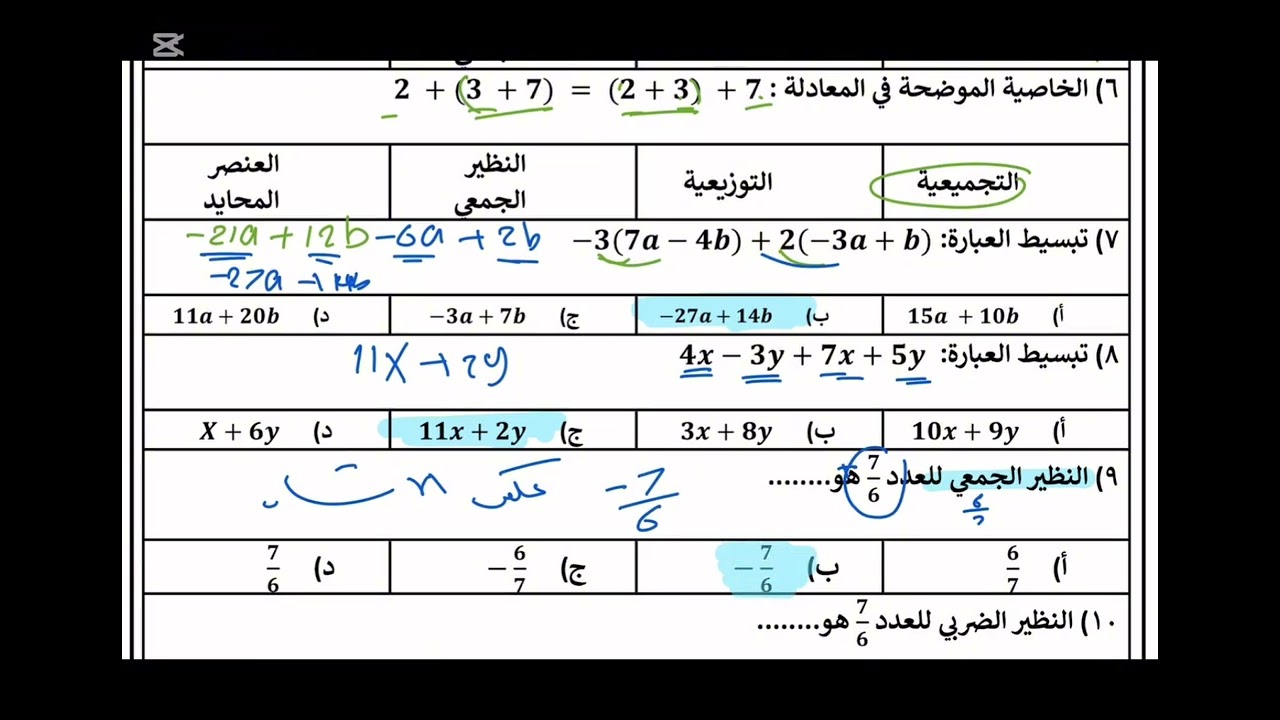 ٦) الخاصية الموضحة في المعادلة : 2 + (3 + 7) = (2 + 3) + 7
التجميعية التوزيعية النظير الجمعي العنصر المحايد
٧) تبسيط العبارة: −3(7a − 4b) + 2(−3a + b)
−21a + 12b −6a + 2b
أ) 15a + 10b ب) −27a + 14b ج) −3a + 7b د) 11a + 20b
٨) تبسيط العبارة: 4x − 3y + 7x + 5y
11x + 2y
أ) 10x + 9y ب) 3x + 8y ج) 11x + 2y د) X + 6y
٩) النظير الجمعي للعدد 7/6 هو........
−7/6
أ) 6/7 ب) −7/6 ج) −6/7 د) 7/6
١٠) النظير الضربي للعدد 7/6 هو........